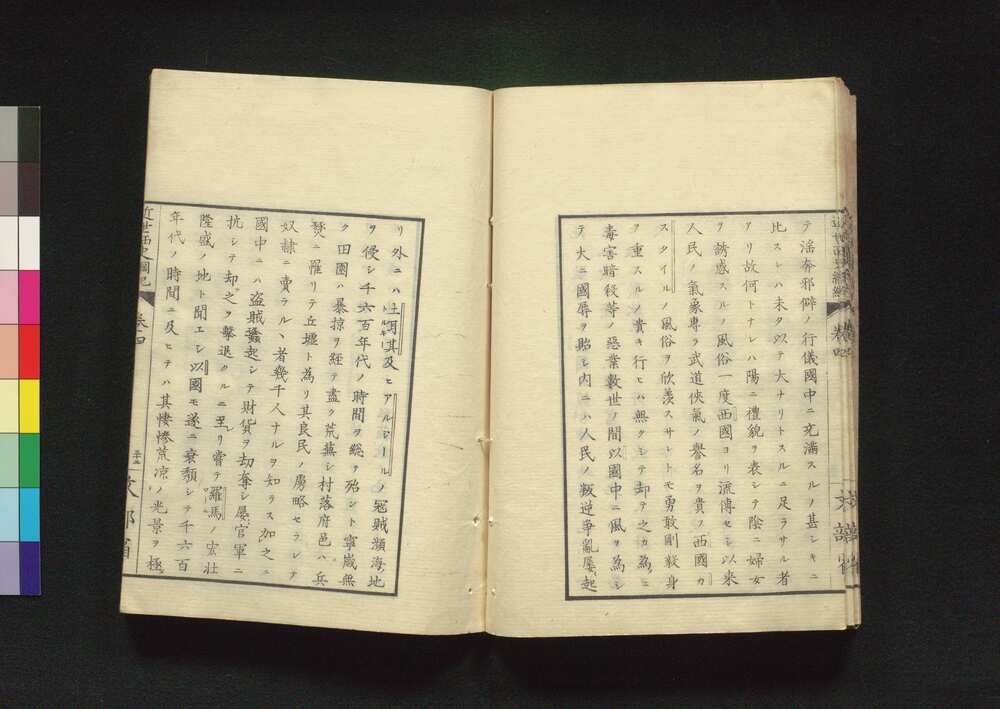 テ滛奔邪僻ノ行儀國中ニ充滿スルノ甚シキニ
比スレハ未タ以テ大ナリトスルニ足ラサル者
アリ故何トナレハ陽ニ禮貌ヲ表シテ陰ニ婦女
ヲ誘惑スルノ風俗一度西國ヨリ流傳セシ以來
人民ノ氣象專ラ武道俠氣ノ譽名ヲ貴フ西國カ
スタイルノ風俗ヲ欣羨スサレトモ勇敢剛毅身
ヲ重スルノ貴キ行ヒハ無クシテ却テ之カ為ニ
毒害暗殺等ノ惡業數世ノ間以國中ニ風ヲ為シ
テ大ニ國辱ヲ貽シ内ニハ人民ノ叛逆爭亂屡起
リ外ニハ土耳其及ヒアルジールノ冦賊瀕海地
ヲ侵シ千六百年代ノ時間ヲ總テ殆シト寧歳無
ク田園ハ暴掠ヲ經テ盡ク荒蕪シ村落府邑ハ兵
燹ニ罹リテ丘墟ト為リ其良民ノ虜略セラレテ
奴隷ニ賣ラルヽ者幾千人ナルヲ知ラス加之ニ
國中ニハ盗賊蠭起シテ財貨ヲ劫奪シ屡官軍ニ
抗シテ却之ヲ擊退クルニ至リ嘗テ羅馬ノ宏壮
隆盛ノ地ト聞エシ以國モ遂ニ衰頽シテ千六百
年代ノ時間ニ及ヒテハ其悽惨荒凉ノ光景ヲ極
近世西史綱紀
卷四
文部省